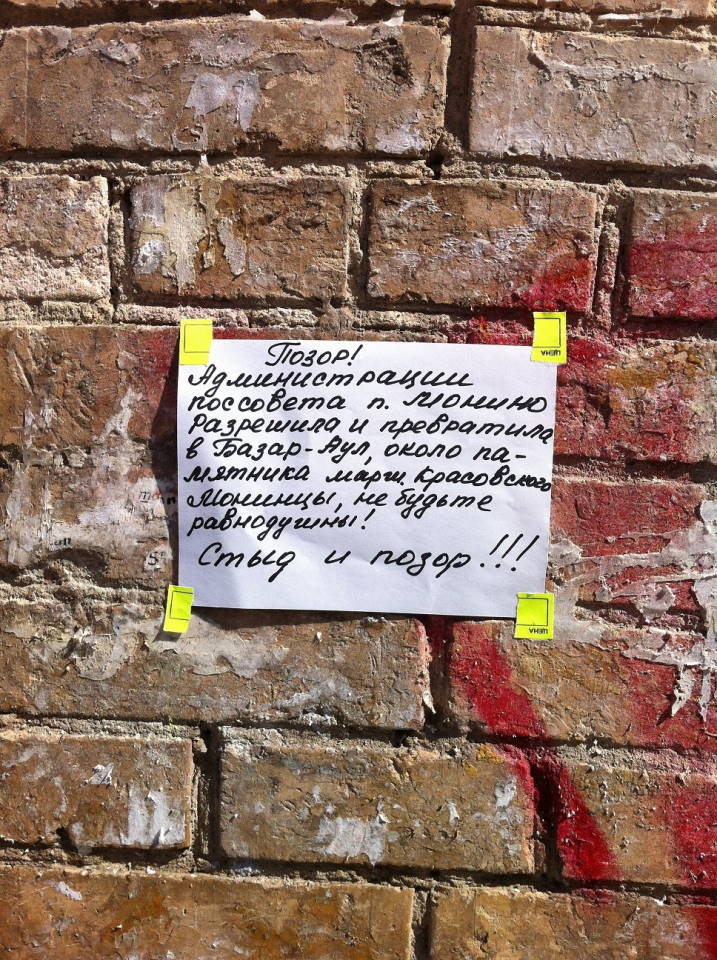 Позор!
Администрации
поссовета п. Монино
Разрешила и превратила
в Базар-Аул, около па-
мятника марш. Красовского
Монинцы, не будьте
равнодушны!
Стыд и позор!!!
ЦЕНА
ЦЕНА